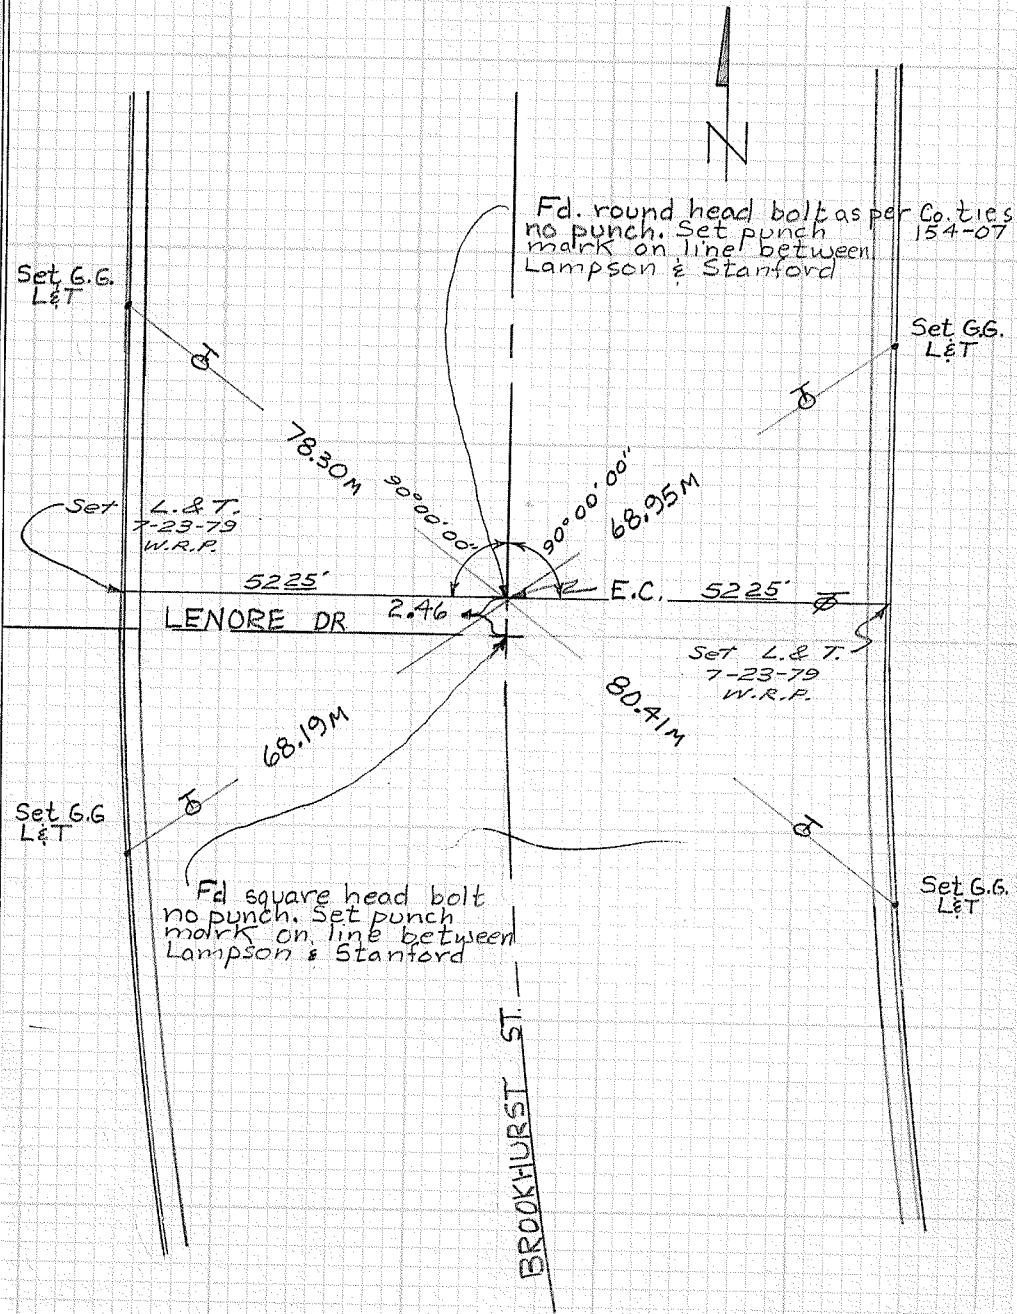 N
Fd. round head bolt as per Co. ties
no punch. Set punch 154-07
mark on line between
Lampson & Stanford
Set G.G.
L&T
Set G.G.
L&T
78.30M
90°00'00"
90°00'00"
68.95M
Set L. & T.
7-23-79
W.R.P.
5225'
E.C.
5225'
LENORE DR
2.46
Set L. & T.
7-23-79
W.R.P.
68.19M
80.41M
Set G.G
L&T
Set G.G.
L&T
Fd square head bolt
no punch. Set punch
mark on line between
Lampson & Stanford
BROOKHURST ST.